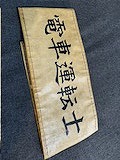 電車運転士